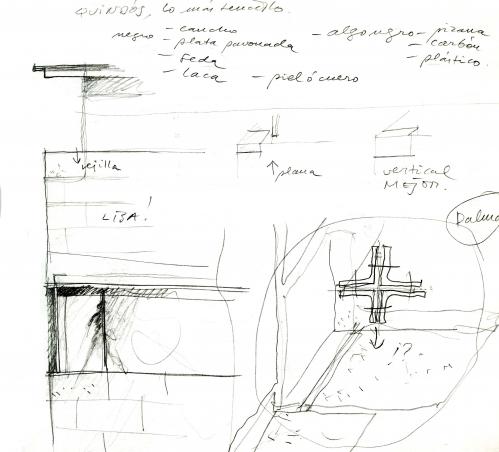 QUINDÓS, lo más sencillo.
negro - caucho
- plata pavonada
- seda
- laca - piel ó cuero
- algo negro - pizarra
- carbón
- plástico.
rejilla
plana
vertical
MEJOR.
LISA!
Palma
¿?